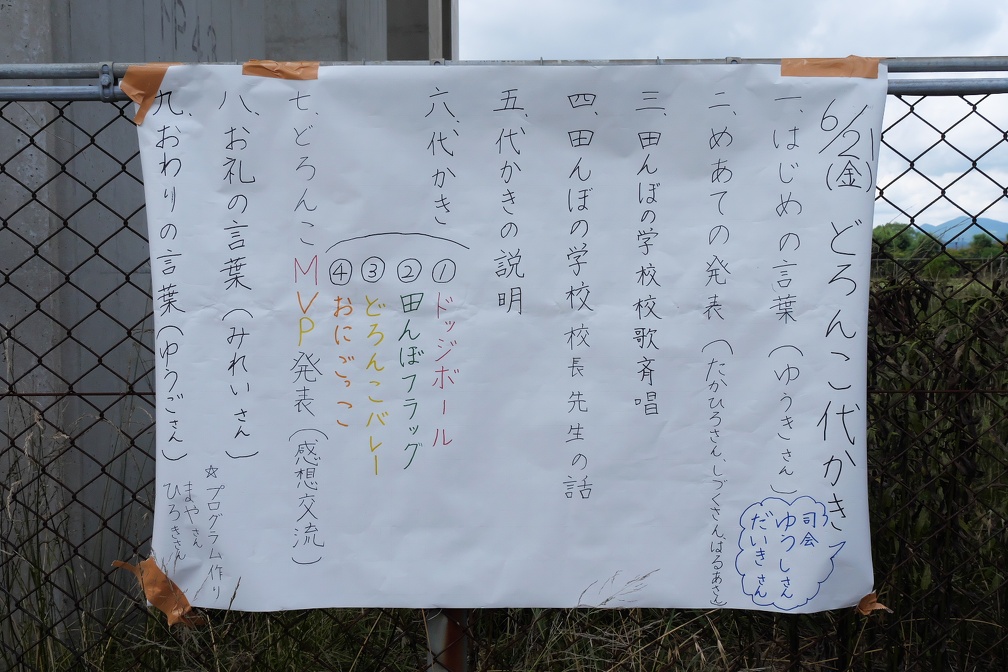 6/2(金)どろんこ代かき
司会
ゆうしさん
だいきさん
一、はじめの言葉(ゆうきさん)
二、めあての発表(たかひろさん、しづくさん、はるあさん)
三、田んぼの学校校歌斉唱
四、田んぼの学校校長先生の話
五、代かきの説明
六、代かき
①ドッジボール
②田んぼフラッグ
③どろんこバレー
④おにごっこ
七、どろんこMVP発表(感想交流)
八、お礼の言葉(みれいさん)
九、おわりの言葉(ゆうごさん)
☆プログラム作り
まやさん
ひろきさん